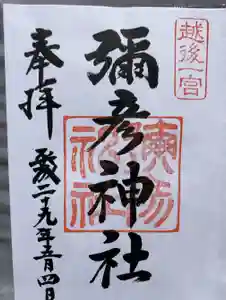 越後一宮
奉拝
彌彦神社
平成二十九年五月四日